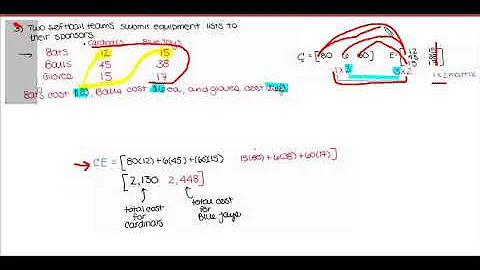 3) Two softball teams submit equipment lists to
their sponsors.
Cardinals Blue Jays
Bats 12 15
Balls 45 38
Gloves 15 17
Bats cost , Balls cost ea, and gloves cost
C = [80 6 60] E =
1 x 3 3 x 2 1 x 2 matrix
CE = [80(12) + 6(45) + (60)15 15(80) + 6(38) + 60(17)]
[2,130 2,448]
total cost for Cardinals
total cost for Blue Jays